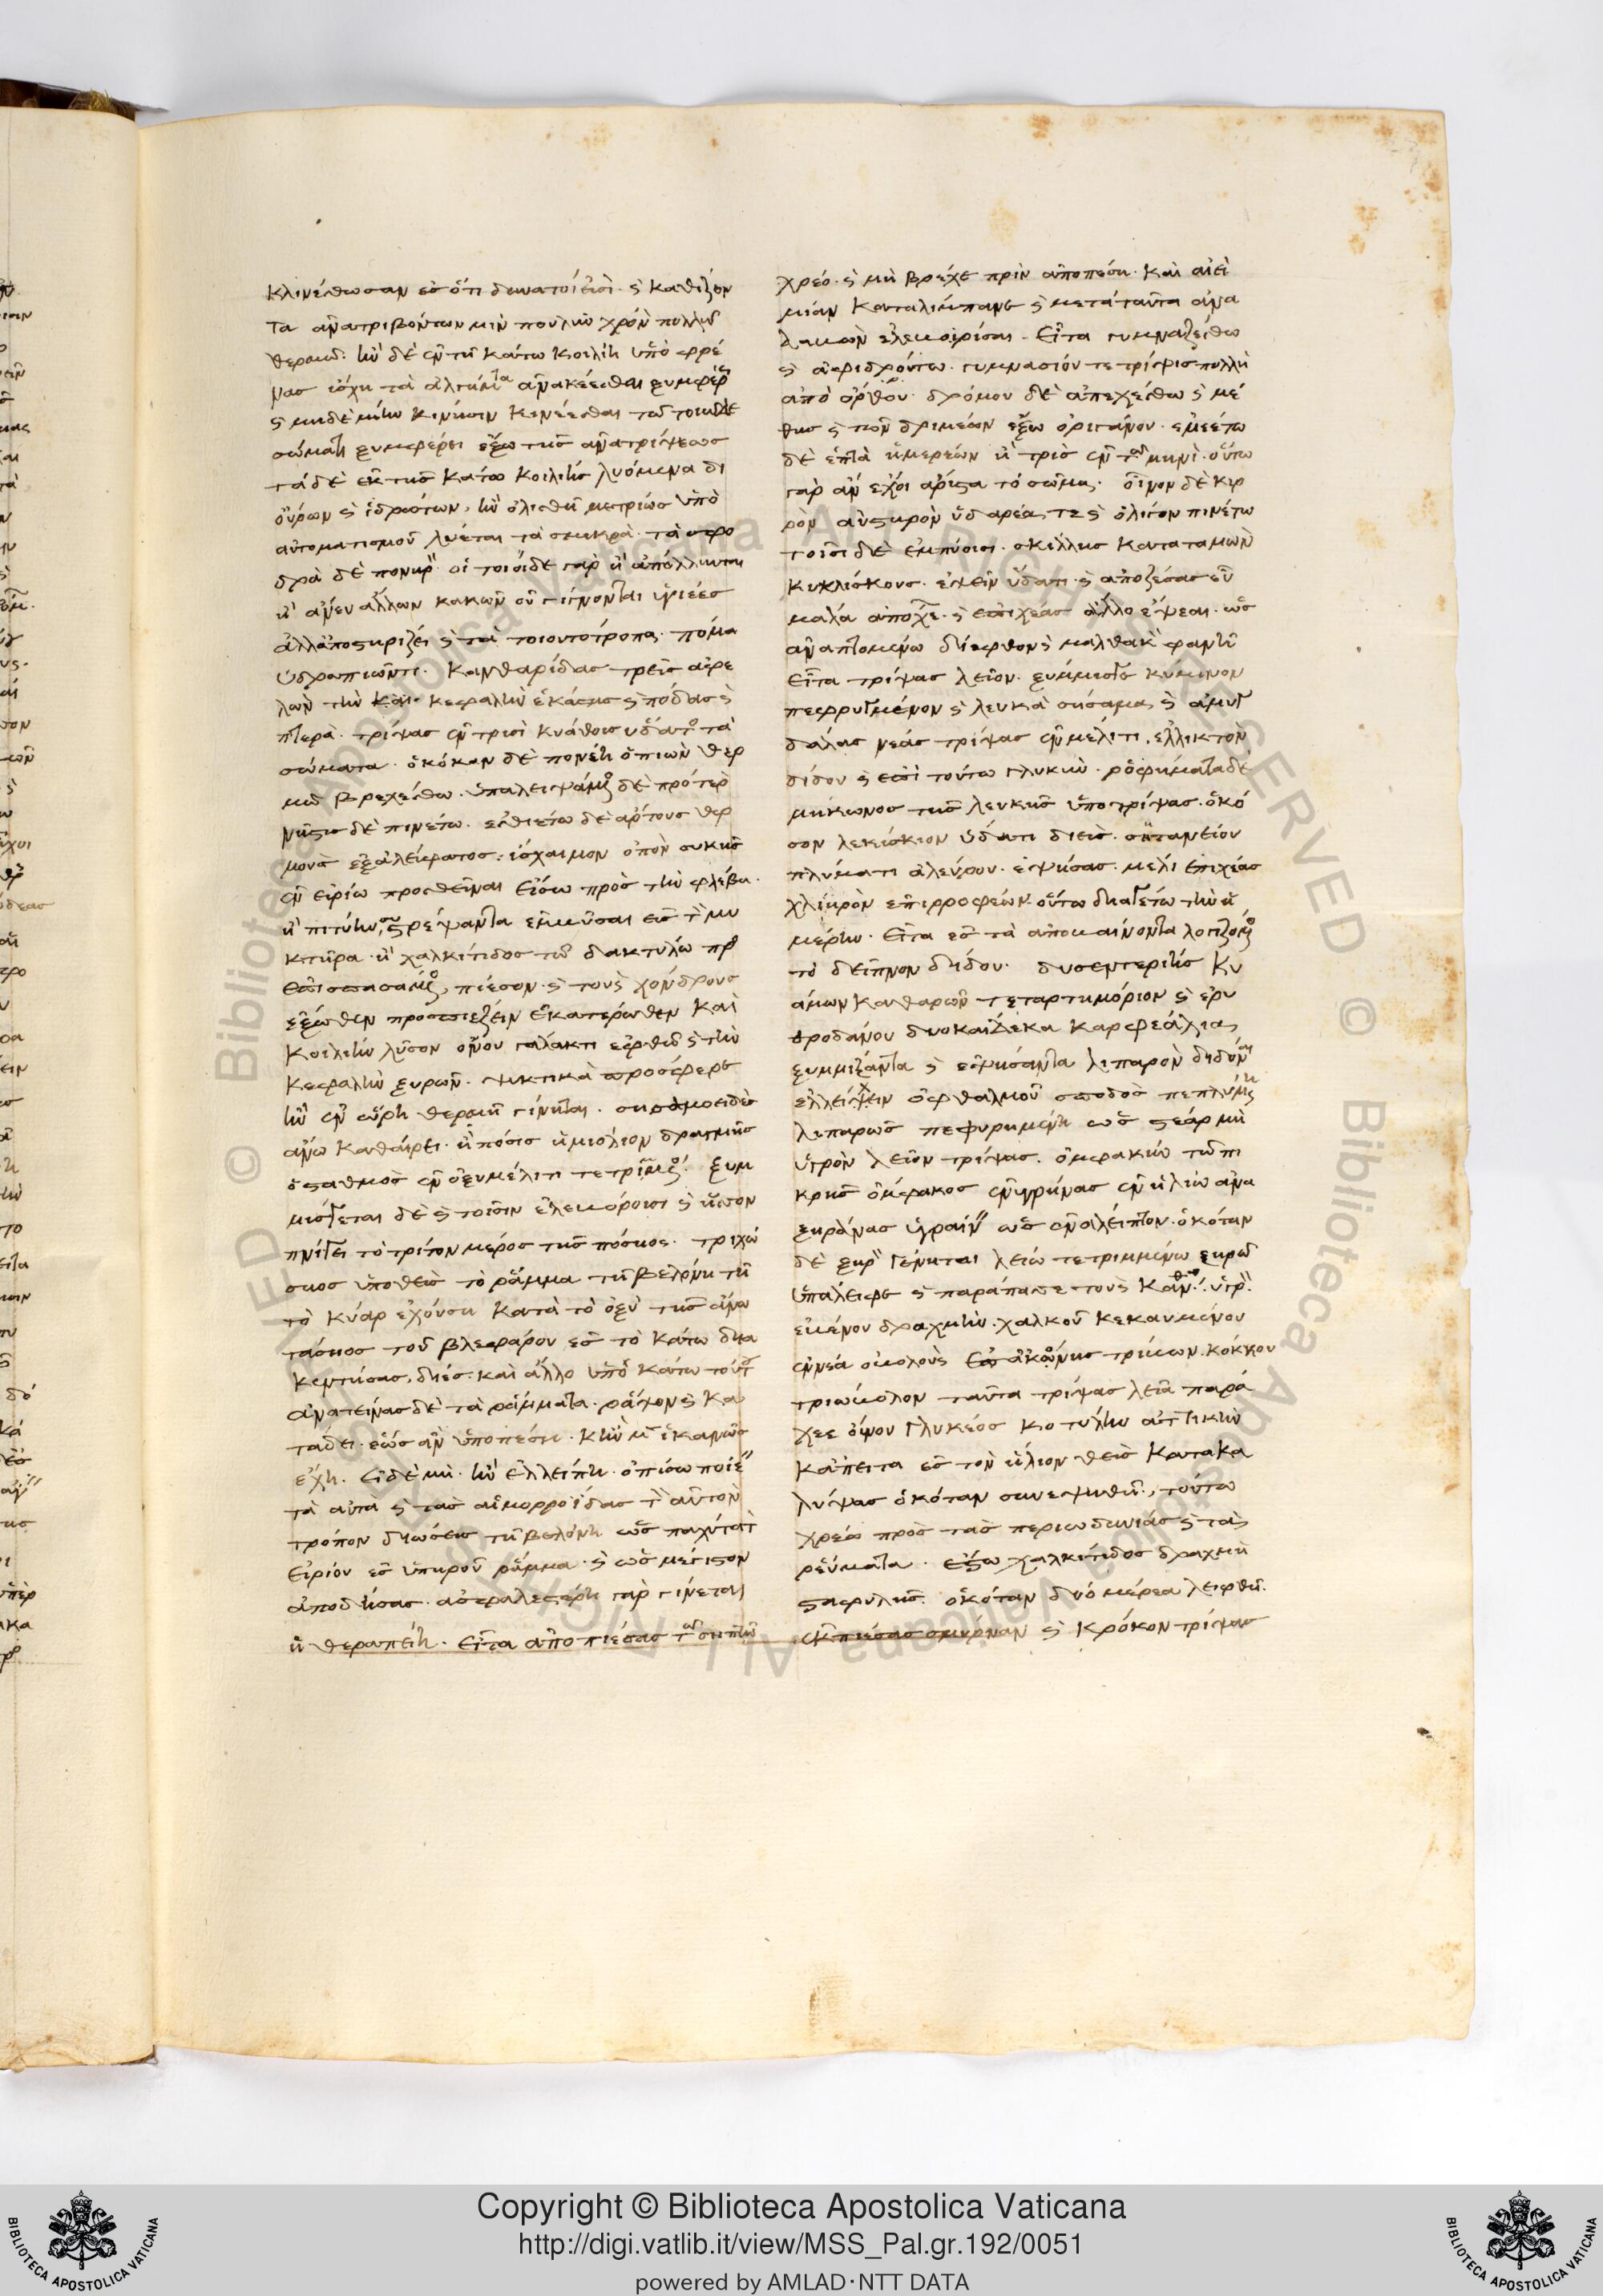 κλινέσθωσαν ἐς ὅτι δυνατοί εἰσι. ϛ καθίζον
τα ἀνατριβόντων μὶν πουλὺν χρόν πολλῶ
θερμῶ. ἢν δὲ ἐν τῆ κάτω κοιλίη ὑπὸ φρέ
νας ἴσχη τὰ ἀλγήματα ἀνακέεσθαι ξυμφέρει
ϛ μηδὲ μίην κίνησιν κινέεσθαι τῶ τοιῶδε
σώματι ξυμφέρει ἔξω τῆς ἀνατρίψεως
τάδὲ ἐκ τῆς κάτω κοιλίης λυόμενα δι
οὔρων ϛ ἱδρώτων, ἢν ὀλισθῆ μετρίως ὑπὸ
αὐτοματισμοῦ λύεται τὰ σμικρὰ. τὰ σφο
δρὰ δὲ πονηρ οἱ τοιοίδε γὰρ ἢ ἀπόλλυνται
ἢ ἄνευ ἄλλων κακῶν οὐ γίγνονται ὑγιέες
ἀλλ ἀποστηρίζει ϛ τὰ τοιουτότροπα. πόμα
ὑδρωπιῶντι. κανθαρίδας τρεῖς ἀφε
λὼν τὴν κεφαλὴν ἑκάστης ϛ πόδας ϛ
πτερὰ. τρίψας ἐν τρισὶ κυάθοις ὕδατος τὰ
σώματα. ὁκόταν δὲ πονέη ὁ πιὼν θερ
μῶ βρεχέσθω. ὑπαλειψάμενος δὲ πρότερ
νῆστις δὲ πινέτω. ἐσθιέτω δὲ ἄρτους θερ
μοὺς ἐξ ἀλείφατος. ἴσχαιμον ὀπὸν συκῆς
ἐν εἰρίω προσθεῖναι εἴσω πρὸς τὴν φλέβα.
ἢ πιτύην, συστρέψαντα ἐμβῦσαι ἐς τὸ μυ
κτῆρα. ἢ χαλκίτιδος τῶ δακτύλω προς
ἐπισπασάμενος, πίεσον. ϛ τοὺς χόνδρους
ἔξωθεν προσπιέζειν ἑκατέρωθεν καὶ
κοιλίην λῦσον ὄνου γάλακτι ἑφθῶ ϛ τὴν
κεφαλὴν ξυρῶν. ψυκτικὰ προσφερε
ἢν ἐν ὥρη θερμῆ γίνηται. σησαμοειδὲς
ἄνω καθαίρει. ἡ πόσις ἡμιόλιον δραχμῆς
ὁ σταθμὸς ἐν ὀξυμέλιτι τετριμμένος. ξυμ
μίσγεται δὲ ϛ τοῖσιν ἐλλεβόροισι ϛ ἧσσον
πνίγει τὸ τρίτον μέρος τῆς πόσιος. τριχώ
σιος ὑποθεὶς τὸ ῥάμμα τῆ βελόνη τῆ
τὸ κύαρ ἐχούση κατὰ τὸ ὀξὺ τῆς ἄνω
τάσιος τοῦ βλεφάρου ἐς τὸ κάτω δια
κεντήσας, δίες. καὶ ἄλλο ὑπὸ κάτω τούτου
ἀνατείνας δὲ τὰ ῥάμματα. ῥάψον ϛ κα
τάδει. ἕως ἂν ὑποπέση. κἢν μὲν ἱκανῶς
ἔχη. εἰ δὲ μὴ. ἢν ἐλλείπη. ὀπίσω ποιέ
τὰ αὐτὰ ϛ τὰς αἱμορροΐδας τὸ αὐτὸν
τρόπον διώσεις τῆ βελόνη ὡς παχύτατ
εἰρίου ἐς ὑπηροῦ ῥάμμα. ϛ ὡς μέγιστον
ἀποδήσας. ἀσφαλεστέρη γὰρ γίνεται
ἡ θεραπείη. εἶτα ἀποπιέσας τῶ σηπτῶ
χρέο. ϛ μὴ βρέχε πρὶν ἀποπέση. καὶ αἰεὶ
μίαν καταλίμπανε ϛ μετὰ ταῦτα ἀνα
λαβὼν ἐλεβορίσαι. εἶτα γυμναζέσθω
ϛ ἀφιδρούντω. γυμνασίου τε τρίψις πολλὴ
ἀπὸ ὄρθρου. δρόμου δὲ ἀπεχέσθω ϛ μέ
θης ϛ τῶν δριμέων ἔξω ὀριγάνου. ἐμεέτω
δὲ ἑπτὰ ἡμερέων ἢ τρὶς ἐν τῶ μηνὶ. οὕτω
γὰρ ἂν ἔχοι ἄριστα τὸ σῶμα. οἶνον δὲ κιρ
ρὸν αὐστηρὸν ὑδαρέα, τε ϛ ὀλίγον πινέτω
τοῖσι δὲ ἐμπύοισι. σκίλλης καταταμὼν
κυκλίσκους. ἕψειν ὕδατι. ϛ ἀποζέσας εὖ
μάλα ἀπόχεε. ϛ ἐπιχέας ἄλλο ἕψεαι. ὡς
ἂν ἁπτομένω δίεφθον ϛ μαλθακ φανῆ
εἶτα τρίψας λεῖον. ξύμμισγε κύμινον
πεφρυγμένον ϛ λευκὰ σήσαμα, ϛ ἀμυγ
δάλας νέας τρίψας ἐν μέλιτι, ἐλλικτὸν
δίδου ϛ ἐπὶ τούτω γλυκὺν. ῥοφήματα δὲ
μήκωνος τῆς λευκῆς ὑποτρίψας. ὁκό
σον λεκίσκιον ὕδατι διεὶς. σητανείου
πλύματι ἀλεύρου. ἑψήσας. μέλι ἐπιχέας
χλιηρὸν ἐπιρροφέων. οὕτω διαγέτω τὴν ἡ
μέρην. εἶτα ἐς τὰ ἀποβαίνοντα λογιζόμενος
τὸ δεῖπνον δίδου. δυσεντερίης κυ
άμων καθαρῶν τεταρτημόριον ϛ ἐρυ
θροδάνου δυοκαίδεκα καρφεα
ξυμμίξαντα ϛ ἑψήσαντα λιπαρὸν διδόναι
ἐλλείχειν ὀφθαλμοῦ σποδὸς πεπλυμένη
λιπαρῶς πεφυρημένη ὡς στέαρ μὴ
ὑγρὸν λεῖον τρίψας. ὀμφακίω τῶ πι
κρῆς ὄμφακος ἐνυγρήνας ἐν ἡλίω ἀνα
ξηράνας ὑγραίν ὡς ἐναλείπτον. ὁκόταν
δὲ ξηρ γένηται λείω τετριμμένω ξηρῶ
ὑπάλειφε ϛ παράπασσε τοὺς κανθ. ὑγρ.
ἐβένου δραχμὴν. χαλκοῦ κεκαυμένου
ἐννέα ὀβολοὺς ἐπ ἀκόνης τρίβων. κρόκου
τριώβολον ταῦτα τρίψας λεῖα παρά
χεε οἴνου γλυκέος κοτύλην ἀττικὴν
κἄπειτα ἐς τὸν ἥλιον θεὶς κατακα
λύψας ὁκόταν συνεψηθῆ, τούτω
χρέο πρὸς τὰς περιωδυνίας ϛ τὰς
ῥεύματα. ἔξω χαλκίτιδος δραχμὴ
σταφυλῆς. ὁκόταν δύο μέρεα λειφθῆ.
ἐκπιέσας σμύρναν ϛ κρόκον τρίψας
Copyright © Biblioteca Apostolica Vaticana
http://digi.vatlib.it/view/MSS_Pal.gr.192/0051
powered by AMLAD·NTT DATA